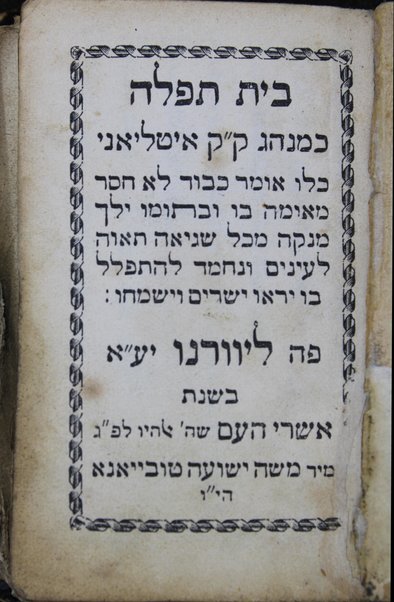 בית תפלה
כמנהג ק״ק איטליאני
כלו אומר כבוד לא חסר
מאומה בו ובתומו ילך
מנקה מכל שגיאה תאוה
לעינים ונחמד להתפלל
בו יראו ישרים וישמחו :
פה ליוורנו יע״א
בשנת
אשרי העם שה׳ אלהיו לפ״ג
מיר משה ישועה טובייאנא
הי״ו